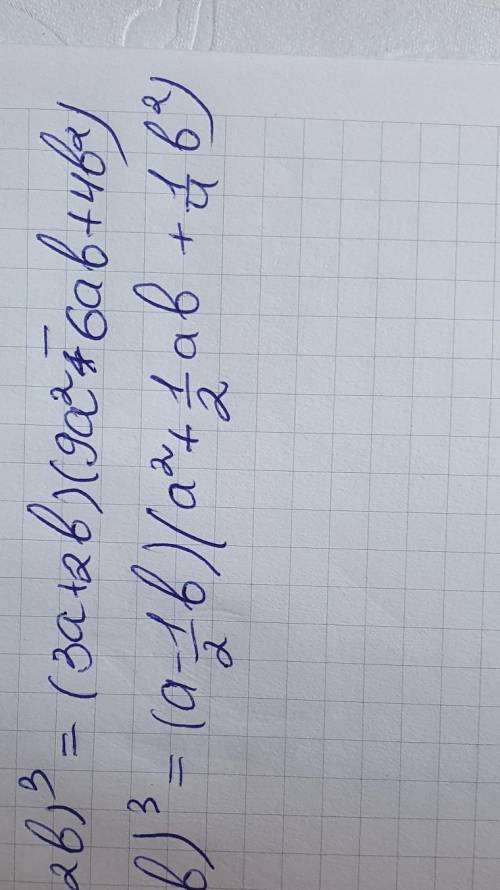 2b)³ = (3a+2b)(9a² - 6ab+4b²)
b)³ = (a - 1/2 b)(a² + 1/2 ab + 1/4 b²)